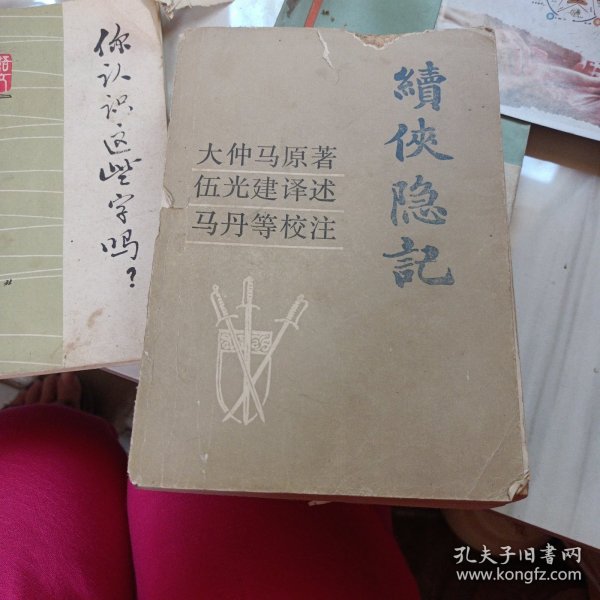 你认识这些字吗？
社
續俠隐記
大仲马原著
伍光建译述
马丹等校注
孔夫子旧书网
www.kongfz.com